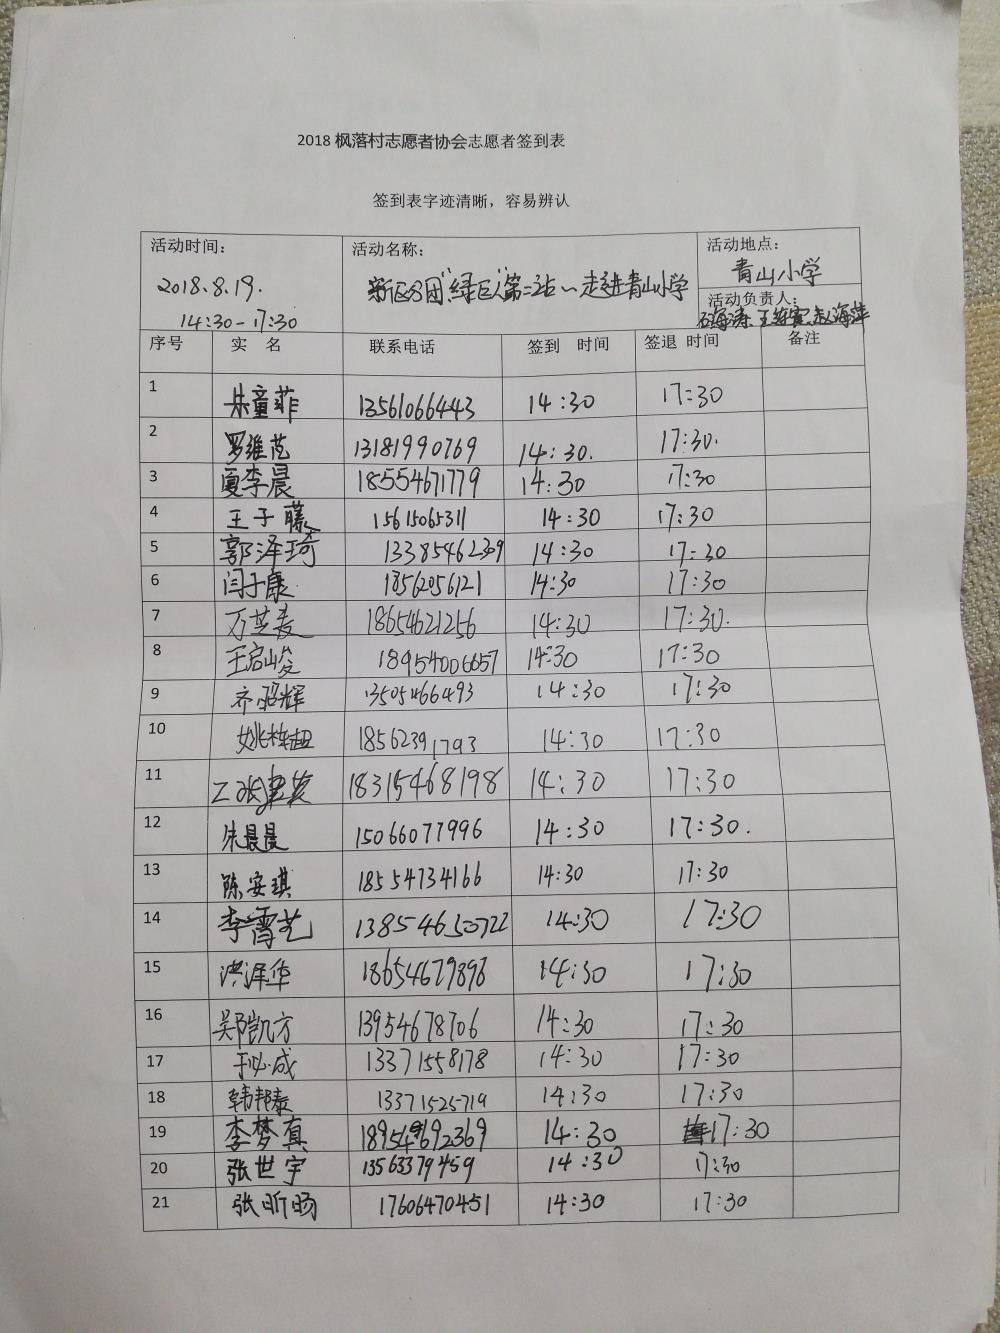 2018 枫落村志愿者协会志愿者签到表
签到表字迹清晰，容易辨认
活动时间：
2018.8.19.
14:30-17:30
活动名称：
新区分团"绿巨人"第二站～走进青山小学
活动地点：
青山小学
活动负责人：
石海涛、王、赵海萍
序号 实 名 联系电话 签到 时间 签退 时间 备注
1 朱童菲 13561066443 14:30 17:30
2 罗维艺 13181990769 14:30. 17:30.
3 夏李晨 18554671779 14:30 17:30
4 王子藤 15615065311 14:30 17:30
5 郭泽琦 13385462309 14:30 17:30
6 闫子康 18562056121 14:30 17:30
7 万芝麦 18654621256 14:30 17:30.
8 王启山俊 18954006657 14:30 17:30
9 齐昭辉 13505466493 14:30 17:30
10 姚栋超 18562391793 14:30 17:30
11 18315468198 14:30 17:30
12 朱晨晨 15066077996 14:30 17:30.
13 陈安琪 18554734166 14:30 17:30
14 李霄艺 13854650722 14:30 17:30
15 洪泽华 18654679898 14:30 17:30
16 吴凯方 13954678706 14:30 17:30
17 于必成 13371558178 14:30 17:30
18 韩邦泰 13371525719 14:30 17:30
19 李梦真 18954692369 14:30 17:30
20 张世宇 13563379459 14:30 17:30
21 张昕旸 17606470451 14:30 17:30